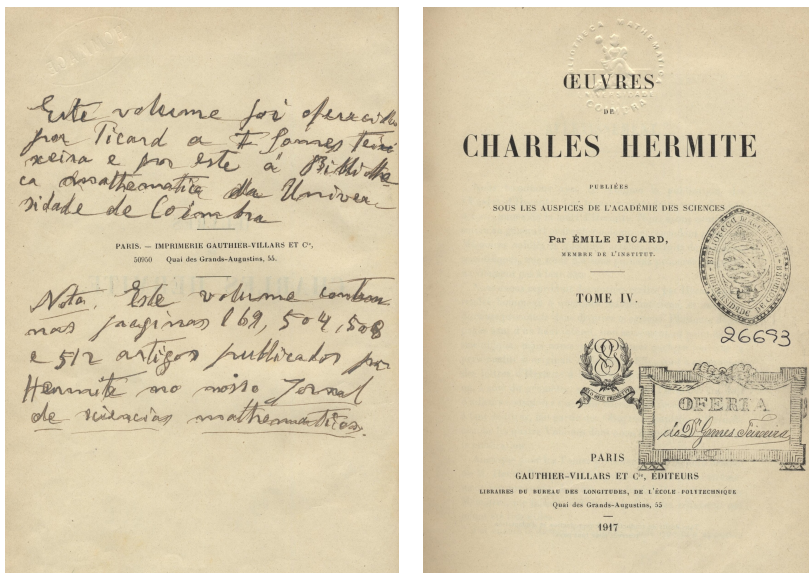 Este volume foi oferecido
por Picard a F Gomes Tei
xeira e por este á Bibliothe
ca mathematica da Univer
sidade de Coimbra
PARIS. — IMPRIMERIE GAUTHIER-VILLARS ET Cie,
50950 Quai des Grands-Augustins, 55.
Nota. Este volume contem
nas paginas 169, 504, 508
e 512 artigos publicados por
Hermite no nosso Jornal
de sciencias mathematicas.
ŒUVRES
DE
CHARLES HERMITE
PUBLIÉES
SOUS LES AUSPICES DE L'ACADÉMIE DES SCIENCES
Par ÉMILE PICARD,
MEMBRE DE L'INSTITUT.
TOME IV.
26693
OFERTA
do Dr Gomes Teixeira
PARIS
GAUTHIER-VILLARS ET Cie, ÉDITEURS
LIBRAIRES DU BUREAU DES LONGITUDES, DE L'ÉCOLE POLYTECHNIQUE
Quai des Grands-Augustins, 55
1917